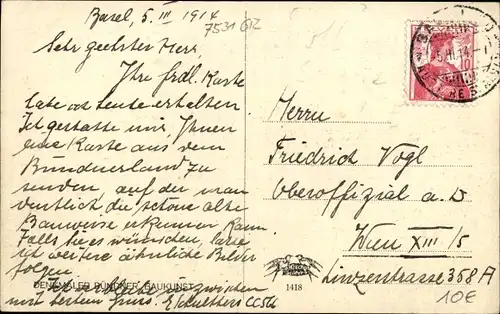 Basel, 5. III 1914
7531 GR
Sehr geehrter Herr,
Ihre frdl. Karte
habe ich heute erhalten
Ich gestatte mir, Ihnen
eine Karte aus dem
Bündnerland zu
senden, auf der man
deutlich, die schöne alte
Bauweise erkennen kann
Falls Sie es wünschen, lasse
ich weitere ähnliche Bilder
folgen.
DENKMÄLER BÜNDNER BAUKUNST
Ich verbleibe inzwischen
mit bestem Gruss.
Herrn
Friedrich Vogl
Oberoffizial a. D
Wien XIII/5
Linzerstrasse 358 A
1418
10€